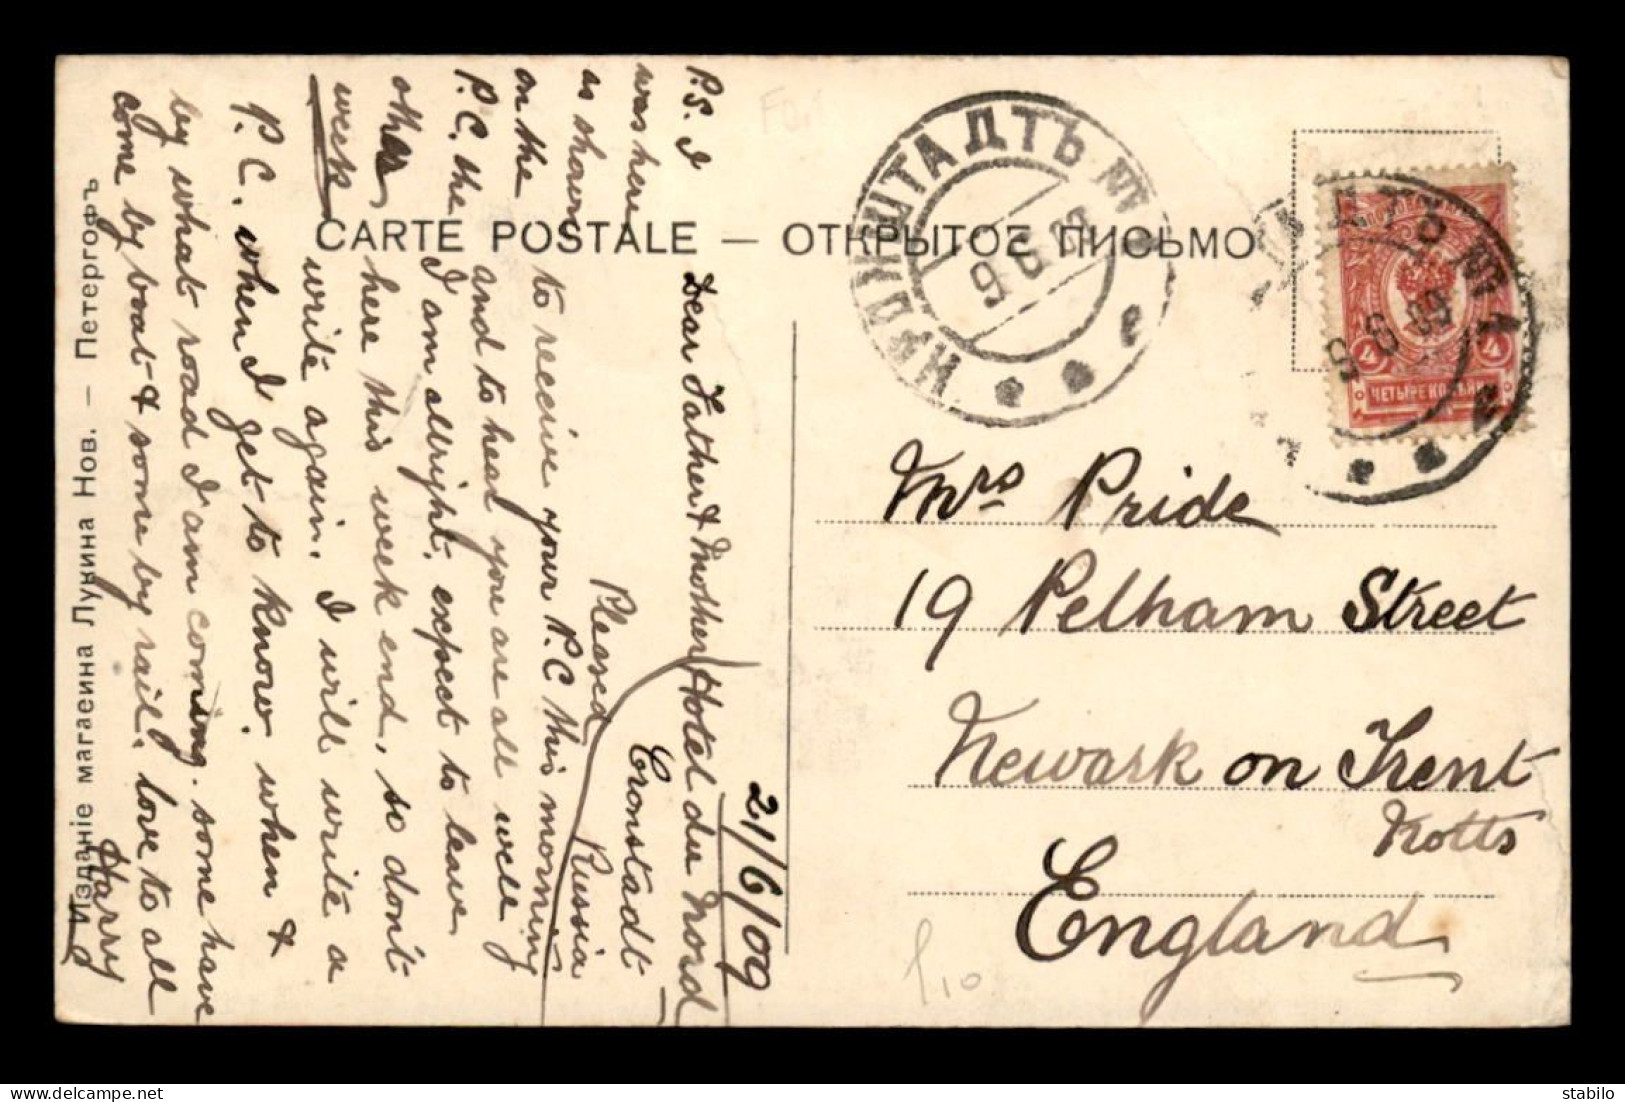 CARTE POSTALE — ОТКРЫТОЕ ПИСЬМО
21/6/09
Hotel du Nord
Cronstadt
Russia
Dear Father & Mother
Pleased
to receive your P.C this morning
and to hear you are all well
I am allright. expect to leave
here this week end, so don't
write again. I will write a
P.C. when I get to know. when &
by what road I am coming. some have
come by boat & some by rail. love to all
Harry
P.S. I
was here
as shown
on the
P.C. the
other
week
Mrs Pride
19 Pelham Street
Newark on Trent
Notts
England
КРОНШТАДТЪ
9 6 09
ЧЕТЫРЕ КОПѢЙКИ
4 4
9 6 09
£10
Изданіе магасина Лукина Нов. — Петергофъ
delcampe.net
stabilo